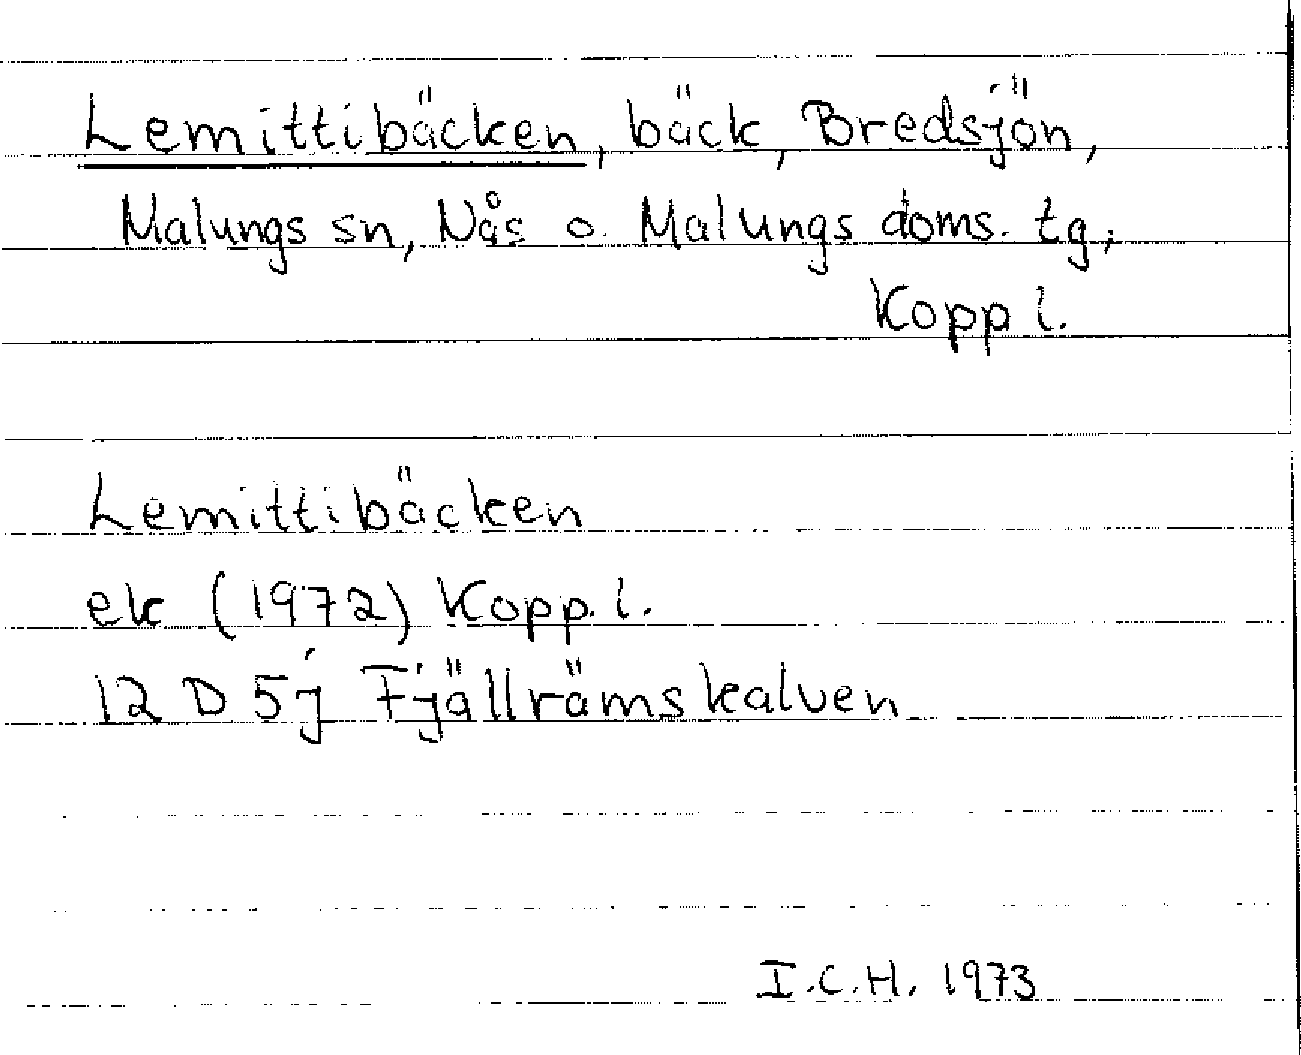 Lemittibäcken, bäck, Bredsjön,
Malungs sn, Nås o. Malungs doms. tg,
Kopp l.
Lemittibäcken
ek (1972) Kopp. l.
12 D 5j Fjällrämskalven
I.C.H. 1973